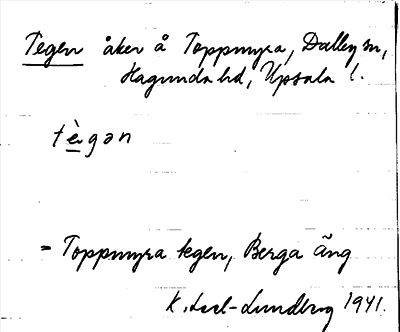 Tegen åker å Toppmyra, Dalby sn,
Hagunda hd, Upsala l.
tègən
= Toppmyra tegen, Berga äng
K. Lundberg 1941.